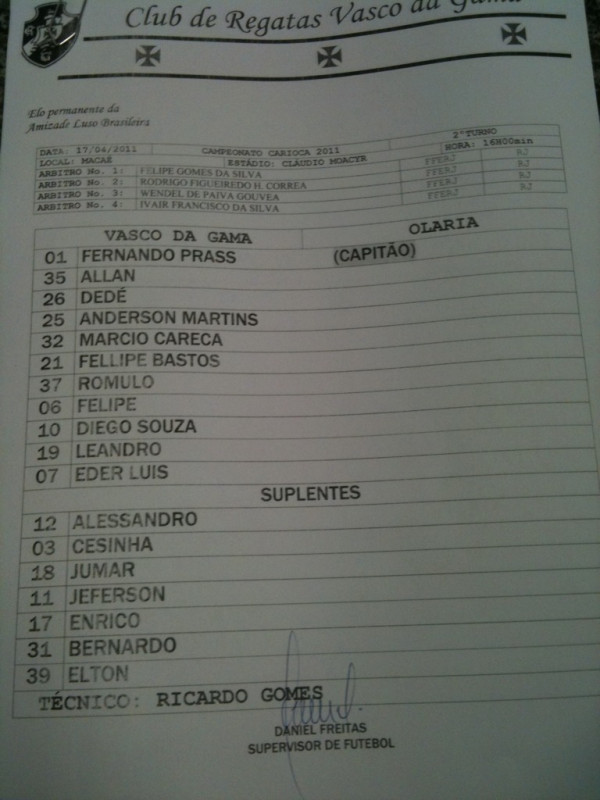 Club de Regatas Vasco da Gama
Elo permanente da
Amizade Luso Brasileira
2º TURNO
DATA: 17/04/2011 CAMPEONATO CARIOCA 2011 HORA: 16H00min
LOCAL: MACAÉ ESTÁDIO: CLÁUDIO MOACYR
ARBITRO No. 1: FELIPE GOMES DA SILVA FFERJ RJ
ARBITRO No. 2: RODRIGO FIGUEIREDO H. CORREA FFERJ RJ
ARBITRO No. 3: WENDEL DE PAIVA GOUVEA FFERJ RJ
ARBITRO No. 4: IVAIR FRANCISCO DA SILVA
VASCO DA GAMA OLARIA
01 FERNANDO PRASS (CAPITÃO)
35 ALLAN
26 DEDÉ
25 ANDERSON MARTINS
32 MARCIO CARECA
21 FELLIPE BASTOS
37 ROMULO
06 FELIPE
10 DIEGO SOUZA
19 LEANDRO
07 EDER LUIS
SUPLENTES
12 ALESSANDRO
03 CESINHA
18 JUMAR
11 JEFERSON
17 ENRICO
31 BERNARDO
39 ELTON
TÉCNICO: RICARDO GOMES
DANIEL FREITAS
SUPERVISOR DE FUTEBOL